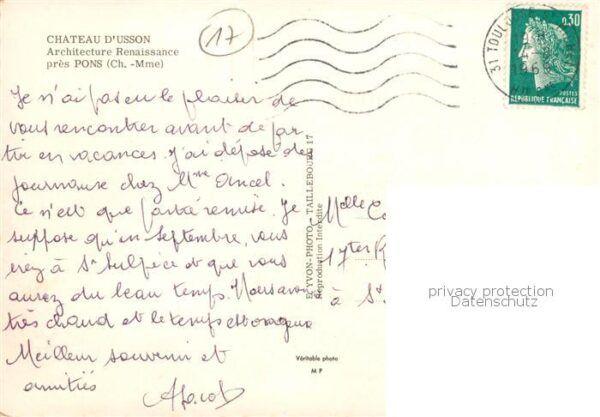 CHATEAU D'USSON
Architecture Renaissance
près PONS (Ch. -Mme)
17
31 TOUL
0,30
POSTES
REPUBLIQUE FRANÇAISE
Je n'ai pas eu le plaisir de
vous rencontrer avant de par
tir en vacances. J'ai déposé des
journaux chez Mme Ancel.
Ce n'est que partie remise. Je
suppose qu'en septembre, vous
irez à St Sulpice et que vous
aurez du beau temps. Nous avons
très chaud et le temps est orageux
Meilleur souvenir et
amitiés
A Jacob
YVON-PHOTO - TAILLEBOURG 17
Reproduction Interdite
Véritable photo
M P
Melle
17ter R
à St
privacy protection
Datenschutz